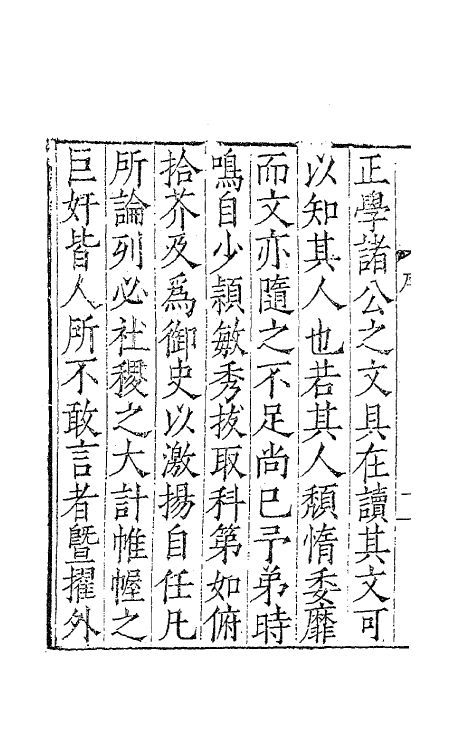 正學諸公之文具在讀其文可
以知其人也若其人頹惰委靡
而文亦隨之不足尚已予弟時
鳴自少穎敏秀拔取科第如俯
拾芥及爲御史以激揚自任凡
所論列必社稷之大計帷幄之
巨奸皆人所不敢言者曁擢外